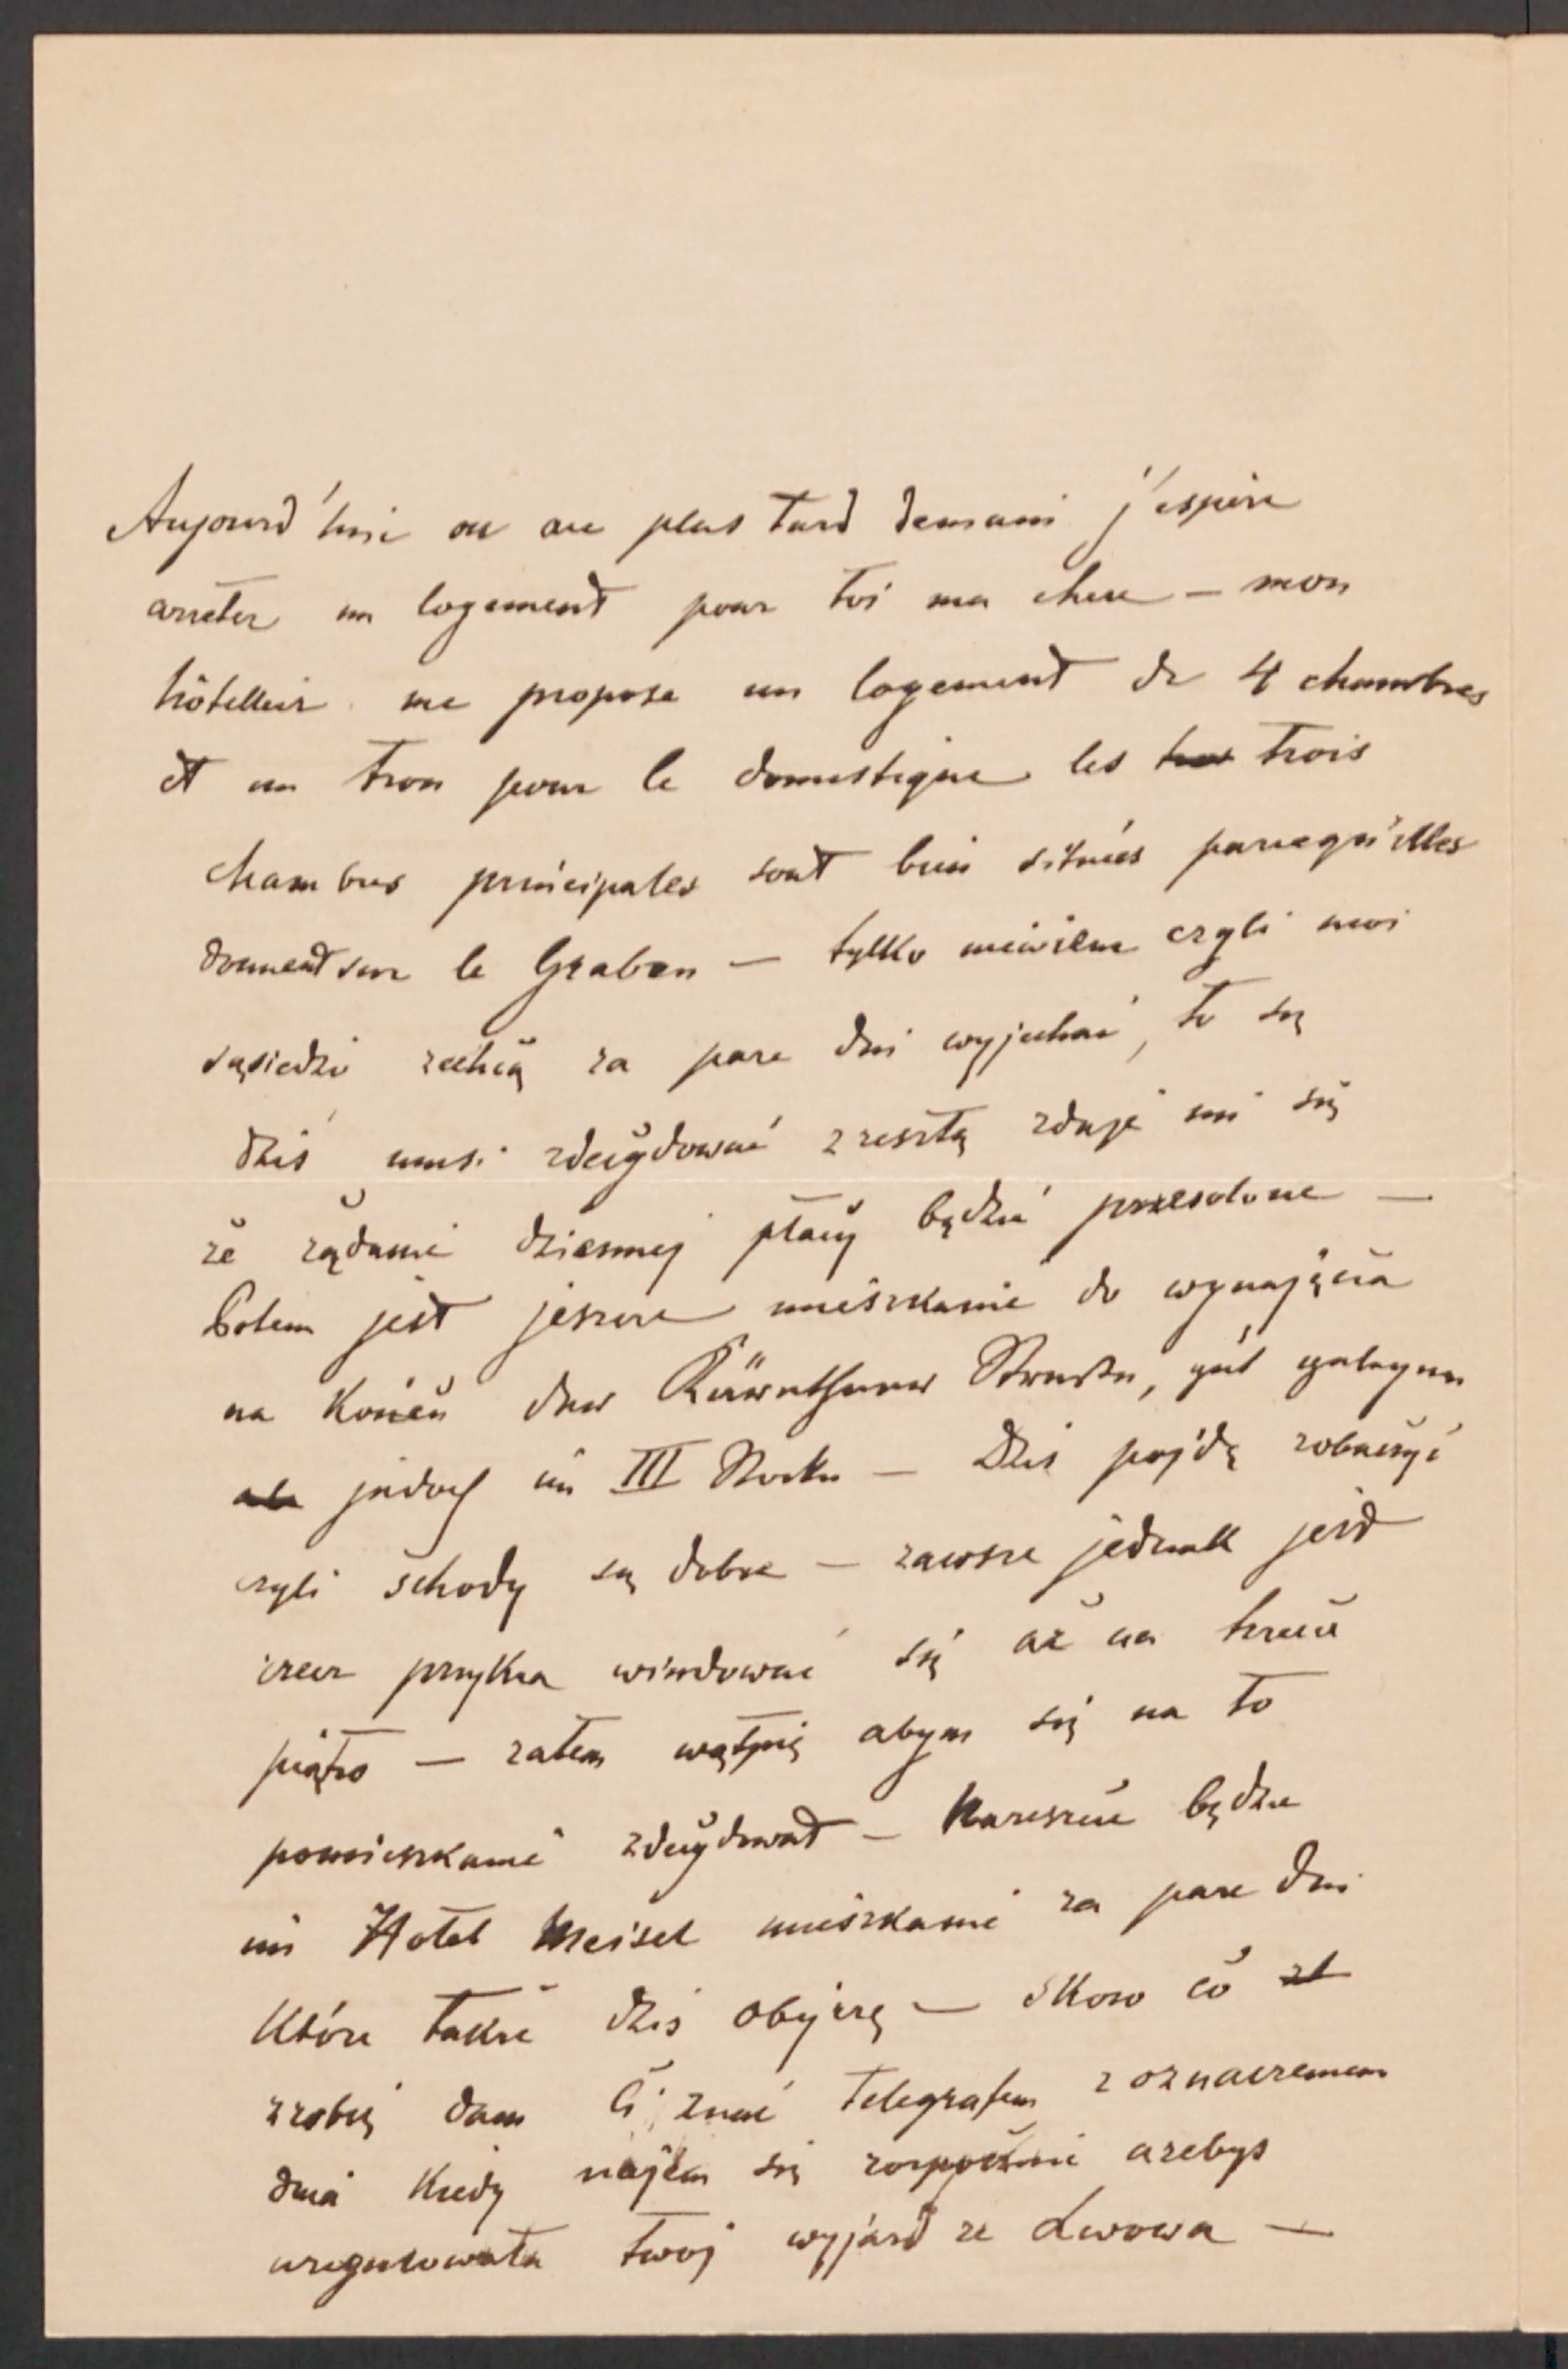 Aujourd'hui ou au plus tard demain j'espère
arreter un logement pour toi ma chere – mon
hôtelleir me propose un logement de 4 chambres
et un trou pour le domestique les trois
chambres principales sont bien situées parcequ'elles
donnent sur le Graben – tylko niewiem czyli moi
sąsiedzi zechcą za pare dni wyjechać, to się
dziś musi zdecydować zresztą zdaje mi się
że żądanie dziennej płacy będzie przesolone –
Potem jest jeszcze mieszkanie do wynajęcia
na końcu der Kärnthner Straße, gut gelegen
jedoch im III Stocke – Dziś pójdę zobaczyć
czyli schody są dobre – zawsze jednak jest
rzecz przykra windować się aż na trzecie
piątro – zatem wątpię abym się na to
pomieszkanie zdecydował – Nareszcie będzie
im Hotel Meisel mieszkanie za pare dni
które także dziś obejrzę – skoro co
zrobię dam Ci znać telegrafem z oznaczeniem
dnia kiedy najem się rozpocznie azebys
uregulowała twoj wyjazd ze Lwowa –